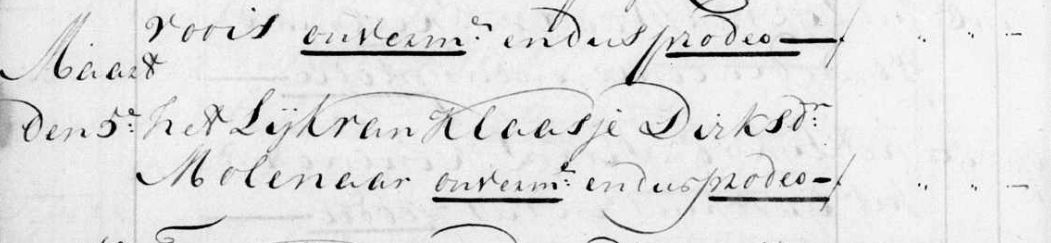 roois onverm:r en dus prodeo — /. " " —
Maart
Den 5e: het Lijk van Klaasje Dirksdr:
Molenaar onverm:r en dus prodeo — /. " " —